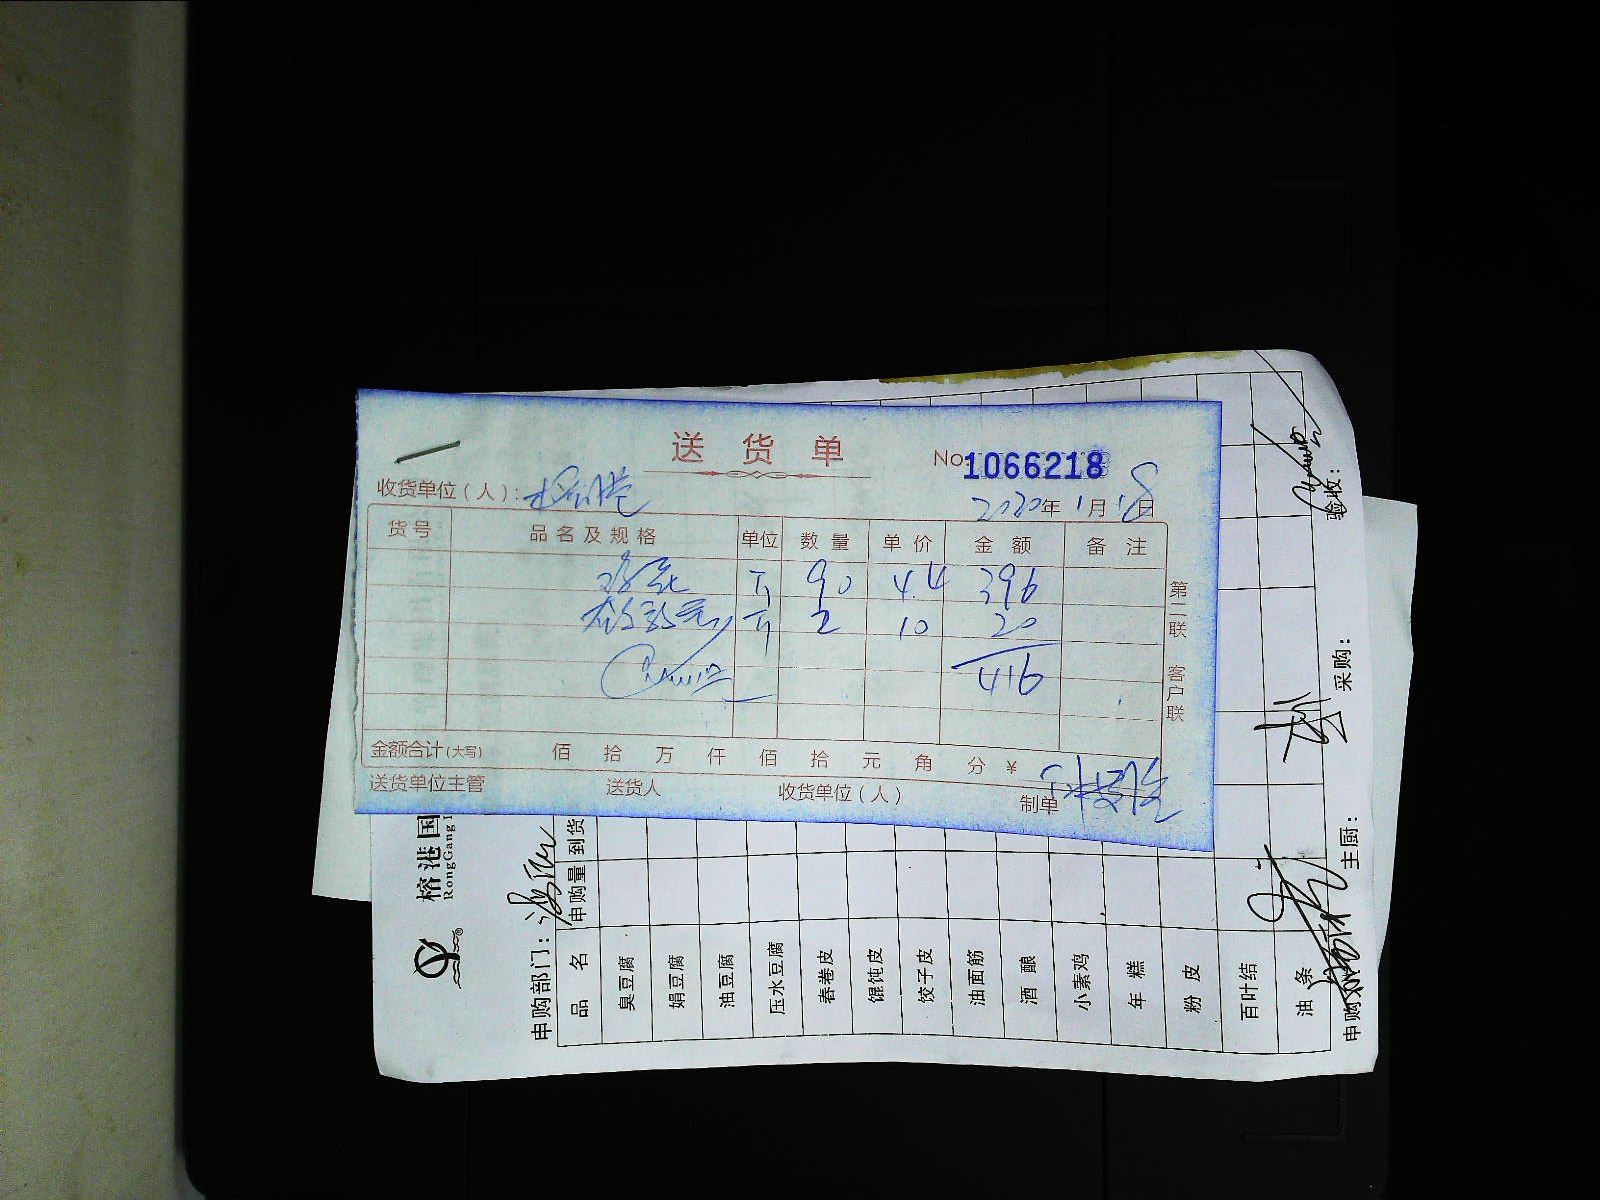 送货单
No.1066218
收货单位（人）：
2020年1月18日
货号 品名及规格 单位 数量 单价 金额 备注
斤 90 4.4 396
斤 2 10 20
416
金额合计(大写) 佰 拾 万 仟 佰 拾 元 角 分 ￥
送货单位主管 送货人 收货单位（人） 制单
第二联 客户联
榕港国
RongGang
申购部门：
品名 申购量 到货
臭豆腐
娟豆腐
油豆腐
压水豆腐
春卷皮
馄饨皮
饺子皮
油面筋
酒酿
小素鸡
年糕
粉皮
百叶结
油条
申购 主厨： 采购： 验收：